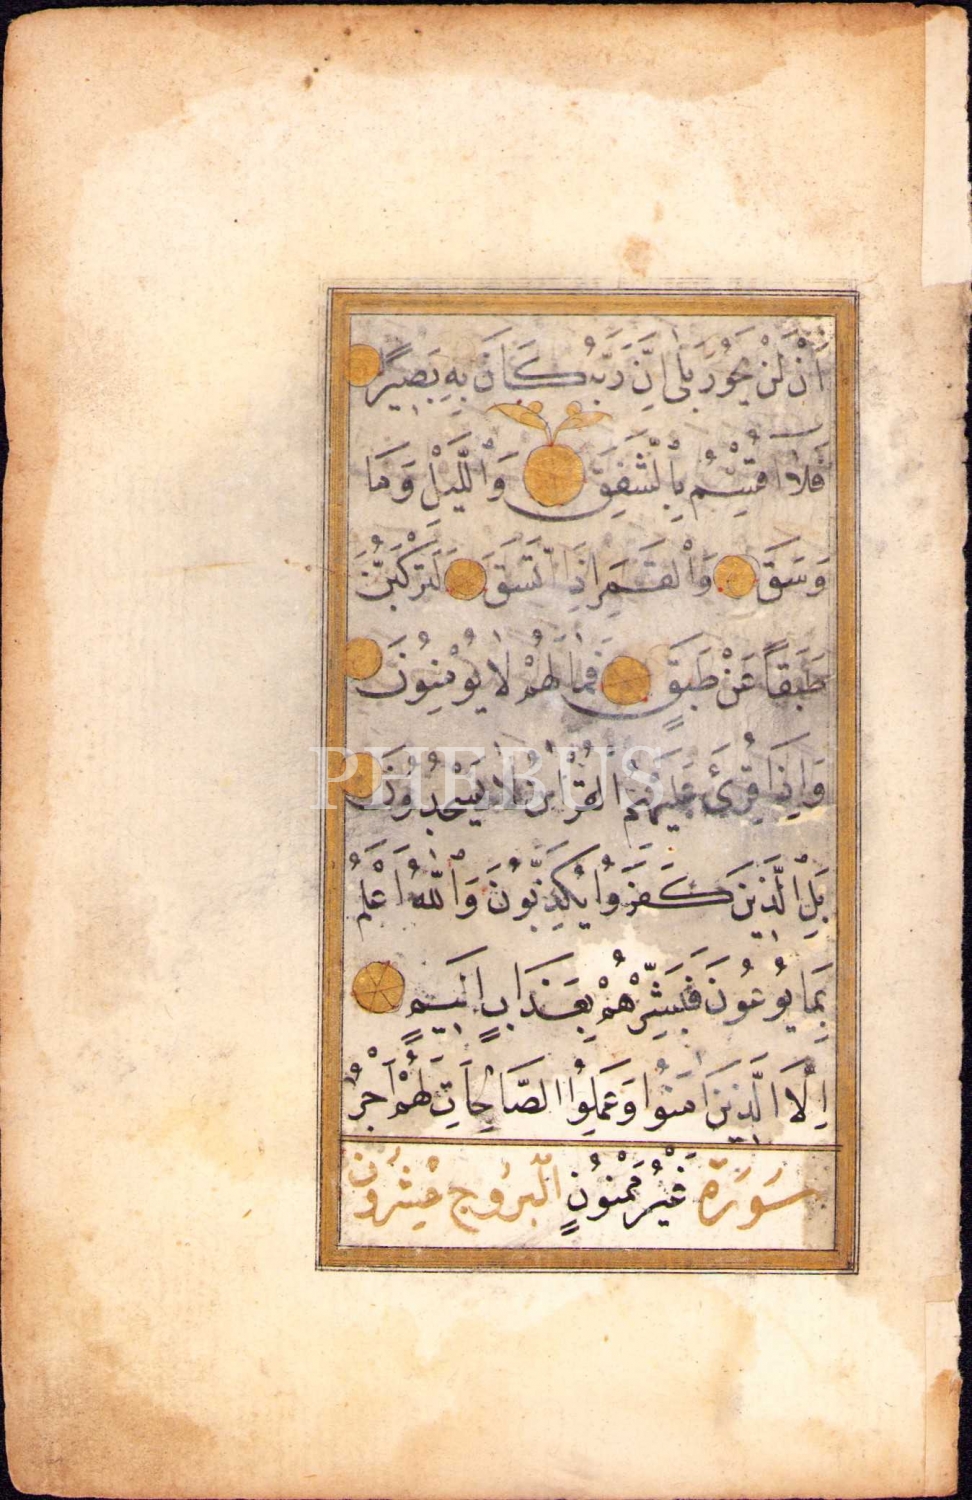 أَنْ لَنْ يَحُورَ بَلَى إِنَّ رَبَّهُ كَانَ بِهِ بَصِيرًا
فَلَا أُقْسِمُ بِالشَّفَقِ وَاللَّيْلِ وَمَا
وَسَقَ وَالْقَمَرِ إِذَا اتَّسَقَ لَتَرْكَبُنَّ
طَبَقًا عَنْ طَبَقٍ فَمَا لَهُمْ لَا يُؤْمِنُونَ
وَإِذَا قُرِئَ عَلَيْهِمُ الْقُرْآنُ لَا يَسْجُدُونَ
PHEBUS
بَلِ الَّذِينَ كَفَرُوا يُكَذِّبُونَ وَاللَّهُ أَعْلَمُ
بِمَا يُوعُونَ فَبَشِّرْهُمْ بِعَذَابٍ أَلِيمٍ
إِلَّا الَّذِينَ آمَنُوا وَعَمِلُوا الصَّالِحَاتِ لَهُمْ أَجْرٌ
سُورَة غَيْرُ مَمْنُونٍ الْبُرُوج عِشْرُون